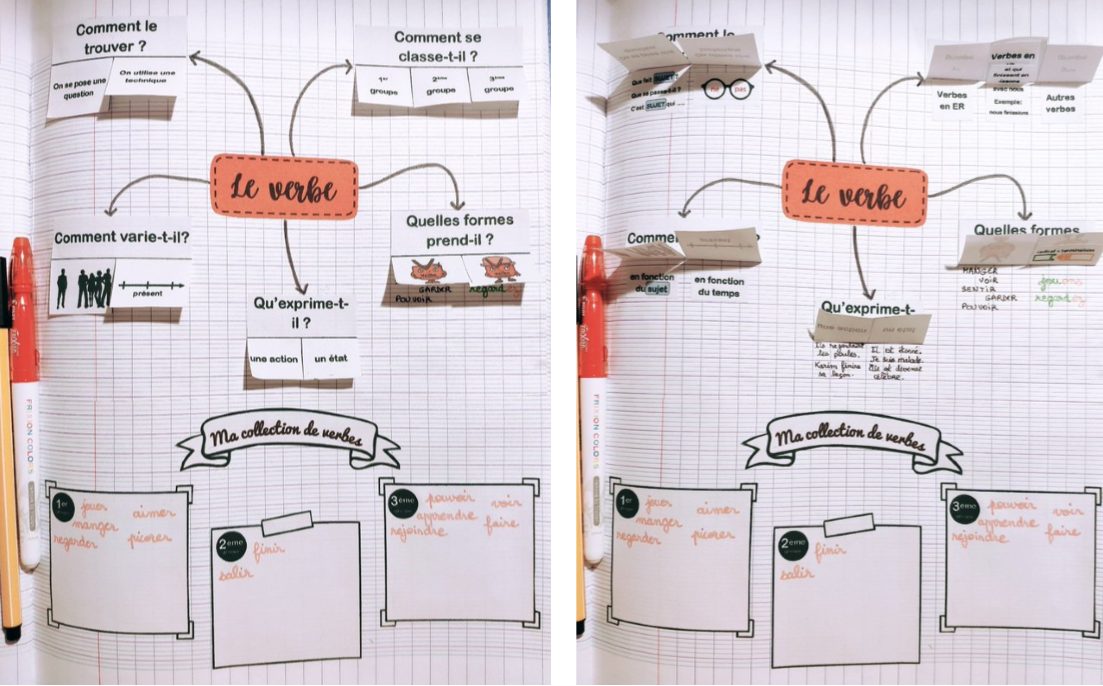 Comment le
trouver ?
On se pose une
question
On utilise une
technique
Comment se
classe-t-il ?
1er
groupe
2ème
groupe
3ème
groupe
Le verbe
Comment varie-t-il?
présent
Quelles formes
prend-il ?
GARDER
POUVOIR
regardez
Qu'exprime-t-
il ?
une action
un état
Ma collection de verbes
1er
jouer
aimer
manger
regarder
picorer
2ème
finir
salir
3ème
pouvoir
voir
apprendre
faire
rejoindre
FRIXION COLORS
Comment le
Que fait SUJET ?
Que se passe-t-il ?
C'est SUJET qui ....
ne
pas
Verbes
en ER
Verbes en
et qui
finissent en
avec nous
Exemple:
nous finissons
Autres
verbes
Le verbe
Comme
?
en fonction
du sujet
en fonction
du temps
Quelles formes
MANGER
VOIR
SENTIR
GARDER
POUVOIR
jouons
regardez
Qu'exprime-t-
les poules.
Karim
sa leçon.
Il est
Je suis malade.
Elle est devenue
célèbre.
Ma collection de verbes
1er
jouer
aimer
manger
regarder
picorer
2ème
finir
salir
3ème
pouvoir
voir
apprendre
faire
rejoindre
FRIXION COLORS